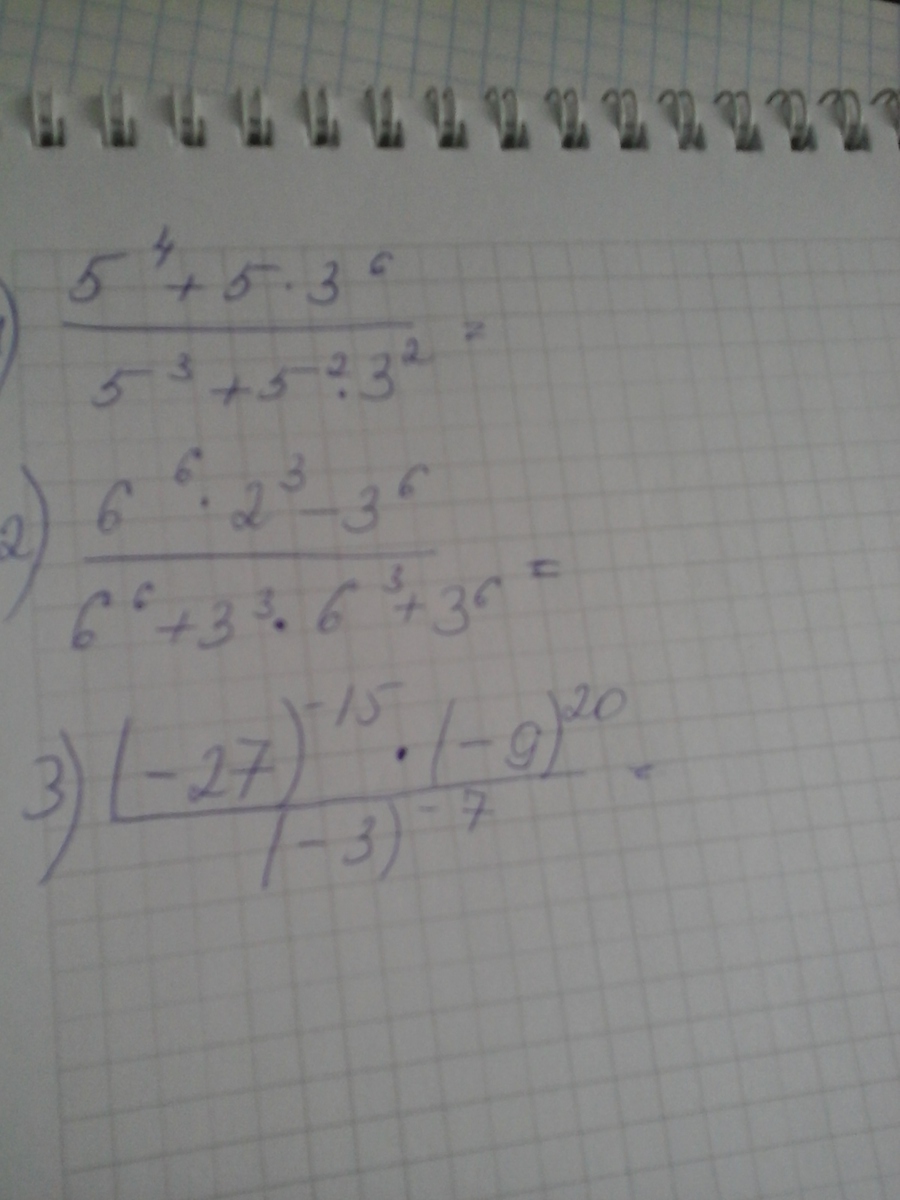 1) (5⁴ + 5 · 3⁶) / (5³ + 5² · 3²) =
2) (6⁶ · 2³ − 3⁶) / (6⁶ + 3³ · 6³ + 3⁶) =
3) ((−27)⁻¹⁵ · (−9)²⁰) / (−3)⁻⁷ =